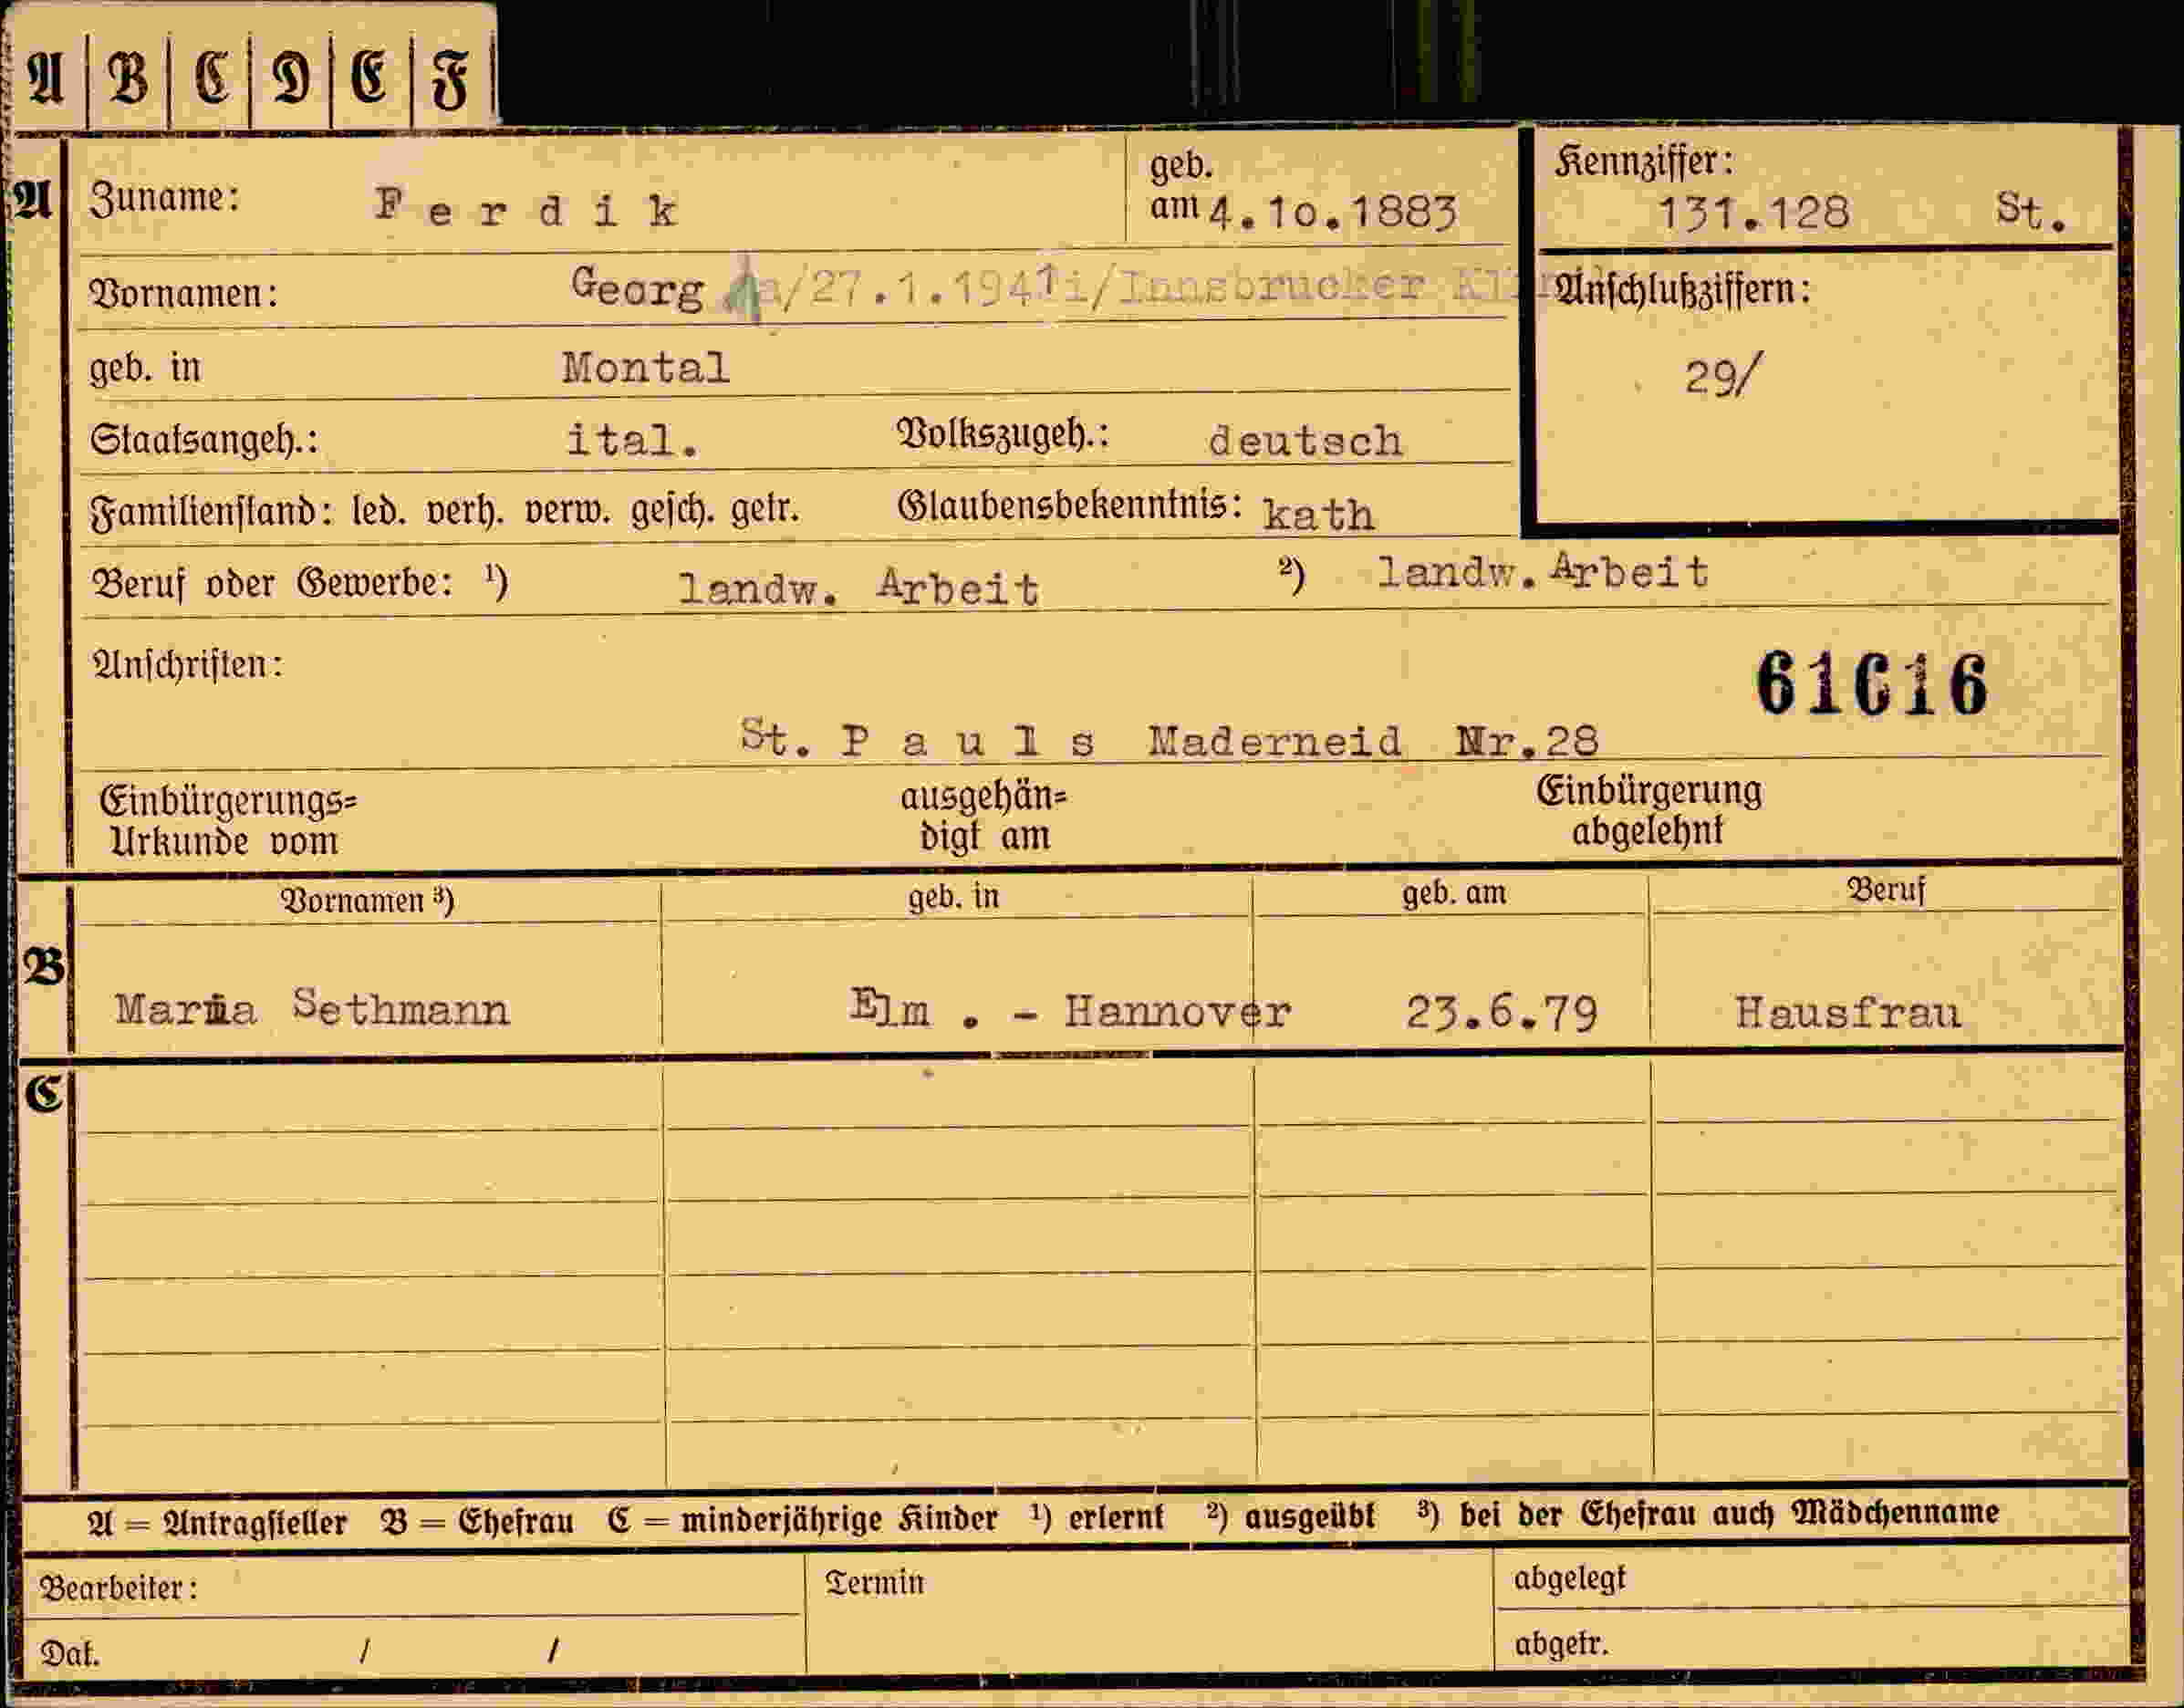 A B C D E F
A Zuname: Ferdik geb. am 4.10.1883 Kennziffer: 131.128 St.
Vornamen: Georg /27.1.1941i/Innsbrucker Anschlußziffern:
geb. in Montal 29/
Staatsangeh.: ital. Volkszugeh.: deutsch
Familienstand: led. verh. verw. gesch. getr. Glaubensbekenntnis: kath
Beruf oder Gewerbe: ¹) landw. Arbeit ²) landw. Arbeit
Anschriften: 61616
St. Pauls Maderneid Nr.28
Einbürgerungs= Urkunde vom ausgehän= digt am Einbürgerung abgelehnt
Vornamen ³) geb. in geb. am Beruf
B Maria Sethmann Elm . - Hannover 23.6.79 Hausfrau
C
A = Antragsteller B = Ehefrau C = minderjährige Kinder ¹) erlernt ²) ausgeübt ³) bei der Ehefrau auch Mädchenname
Bearbeiter: Termin abgelegt
Dat. / / abgetr.